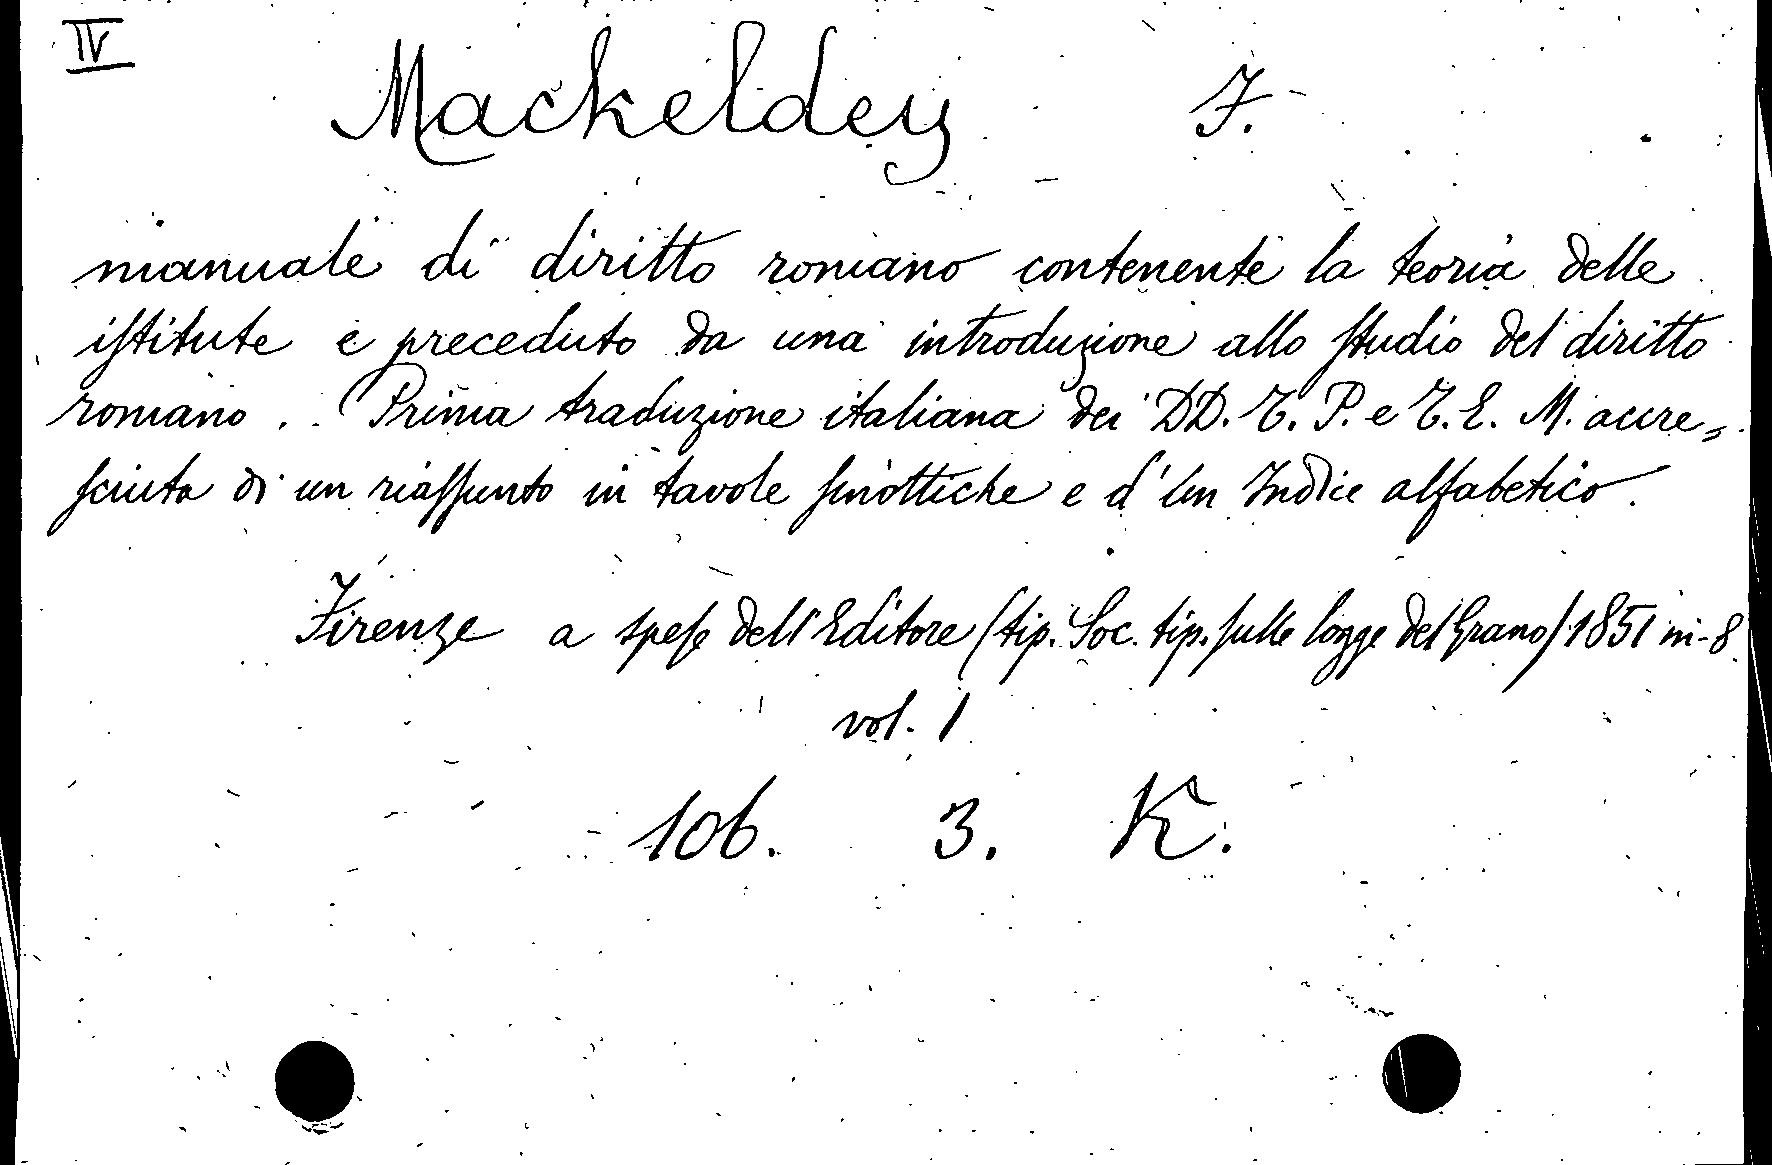 IV
Mackeldey F.
manuale di diritto romano contenente la teoria delle
istitute e preceduto da una introduzione allo studio del diritto
romano .. Prima traduzione italiana dei DD. T. P. e T. E. M. accre=
sciuta di un riassunto in tavole sinottiche e d'un Indice alfabetico.
Firenze a spese dell'Editore (tip. Soc. tip. sulle logge del Grano) 1851 in-8
vol. 1
106. 3. K.